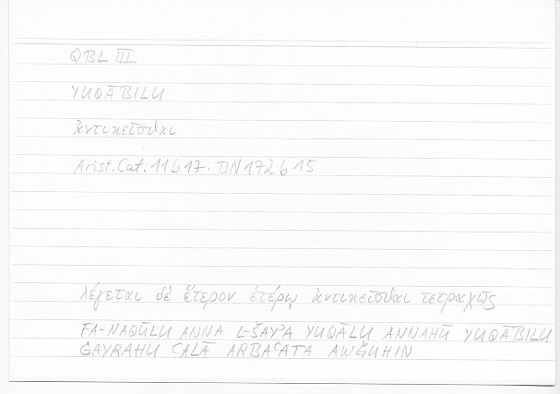 QBL III
YUQĀBILU
ἀντικεῖσθαι
Arist. Cat. 11b17. BN172b15
λέγεται δὲ ἕτερον ἑτέρῳ ἀντικεῖσθαι τετραχῶς
FA-NAQŪLU ANNA L-ŠAYʾA YUQĀLU ANNAHŪ YUQĀBILU
ĠAYRAHU ʿALĀ ARBAʿATA AWǦUHIN